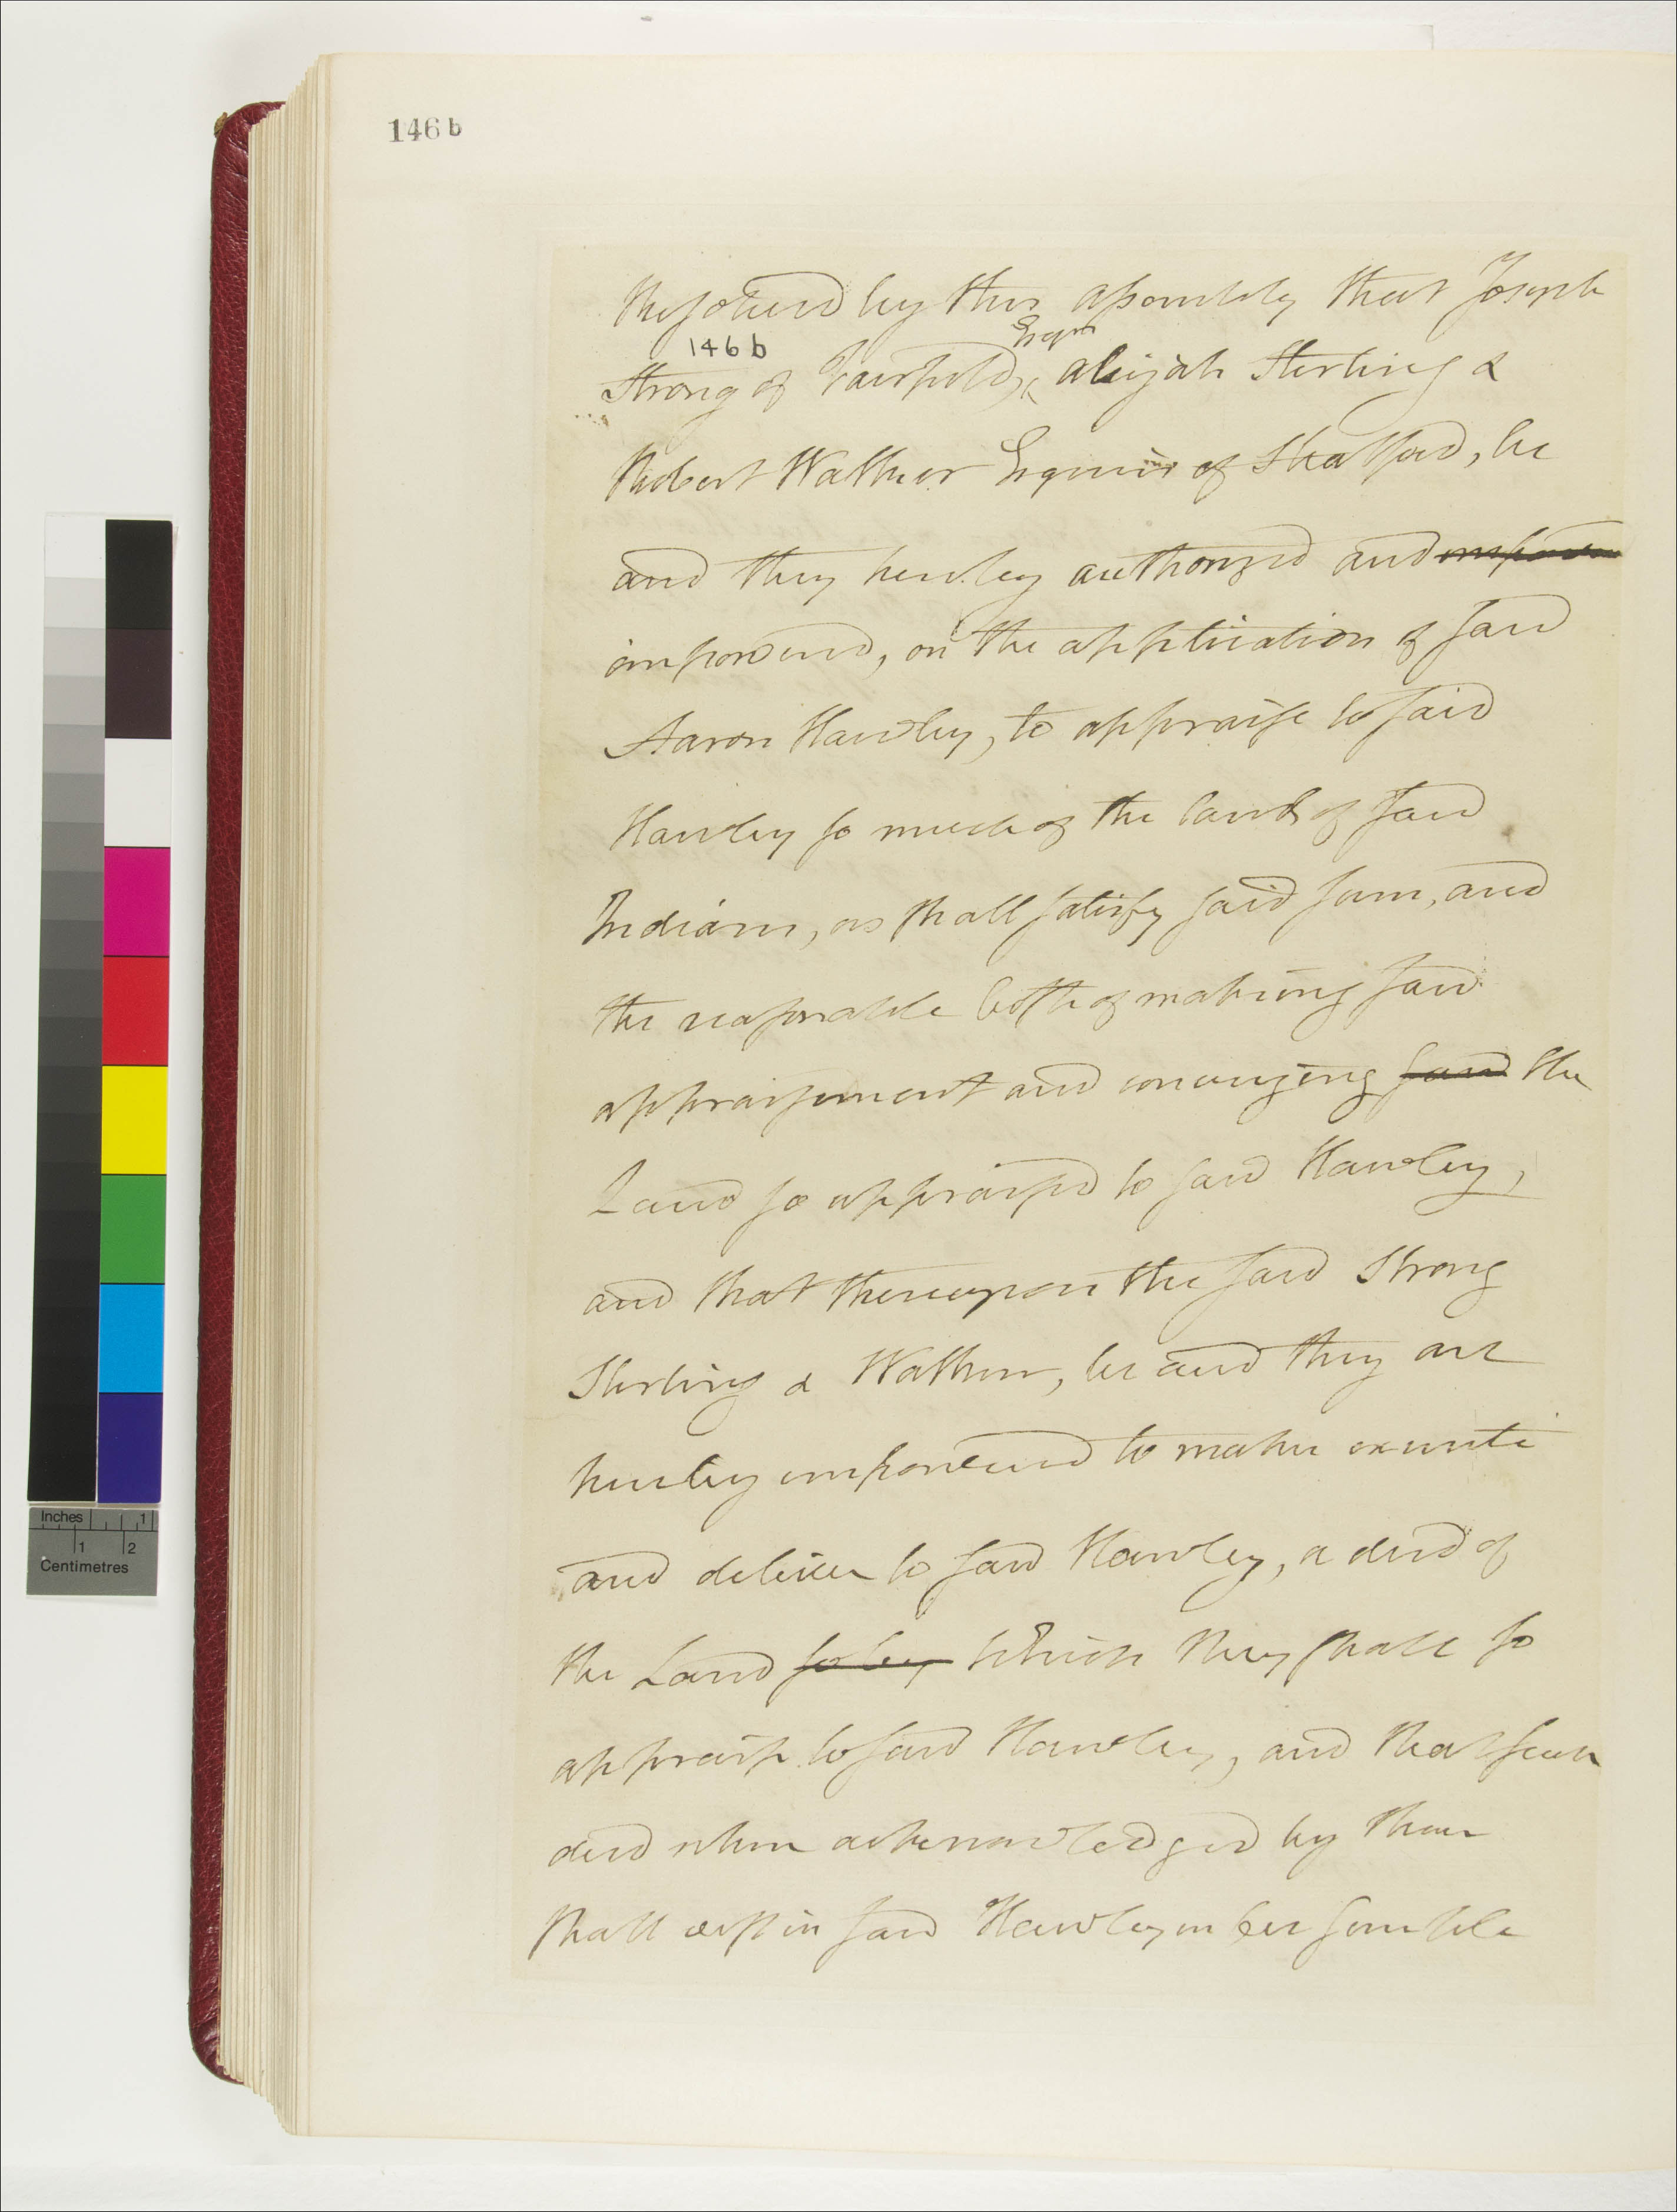 146 b
Resolved by this assembly that Joseph
146 b
Esqr
Strong of Fairfield, Abijah Sterling &
Robert Walker Esquires of Stratford, be
and they hereby authorized and empower
impowered, on the application of said
Aaron Hawley, to appraise to said
Hawley so much of the land of said
Indians, as shall satisfy said sum, and
the reasonable Costs of making said
appraisement and conveying said the
Land so appraised to said Hawley,
and that thereupon the said Strong
Sterling & Walker, be and they are
hereby impowered to make execute
and deliver to said Hawley, a deed of
the Land which they shall so
appraise to said Hawley, and that such
deed when acknowledged by them
shall vest in said Hawley
Inches 1
1 2
Centimetres